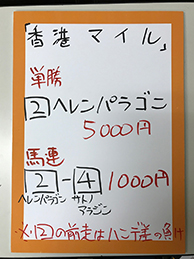 「香港マイル」
単勝
2 ヘレンパラゴン
5000円
馬連
2-4 1000円
ヘレンパラゴン サトノアラジン
※2の前走はハンデ差の負け